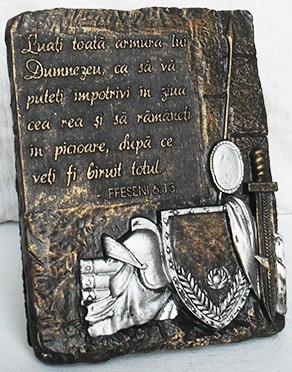 Luați toată armura lui
Dumnezeu, ca să vă
puteți împotrivi în ziua
cea rea și să rămâneți
în picioare, după ce
veți fi biruit totul.
- EFESENI 6:13